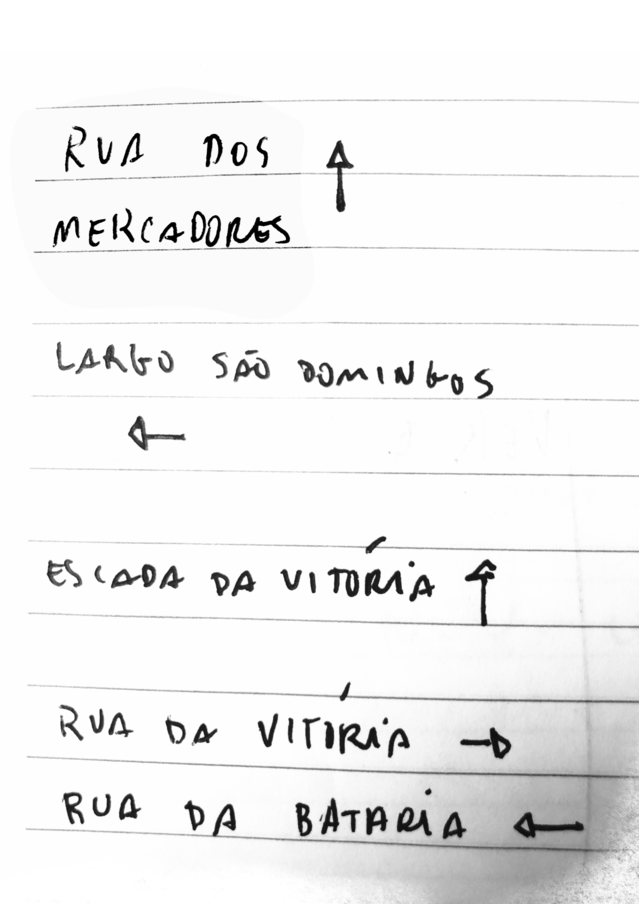 RUA DOS ↑
MERCADORES
LARGO SÃO DOMINGOS
←
ESCADA DA VITÓRIA ↑
RUA DA VITÓRIA →
RUA DA BATARIA ←